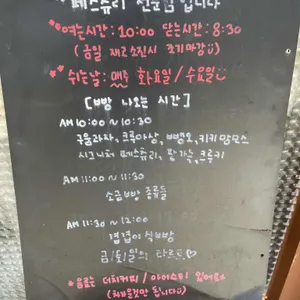 * 페스츄리 전문점 입니다
*여는시간: 10:00 닫는시간: 8:30
(금일 재료소진시 조기마감)
*쉬는날: 매주 화요일/수요일
[빵 나오는 시간]
AM 10:00 ~ 10:30
구움과자, 크루아상, 뺑쇼, 키키앙모스
시그니처 페스츄리, 퐁카눌, 크루키
AM 11:00 ~ 11:30
소금빵 종류들
AM 11:30 ~ 12:00
겹겹이식빵
금/토/일의 타르트♡
*음료는 더치커피 / 아이스티 있어요
(차가운것만 됩니다)